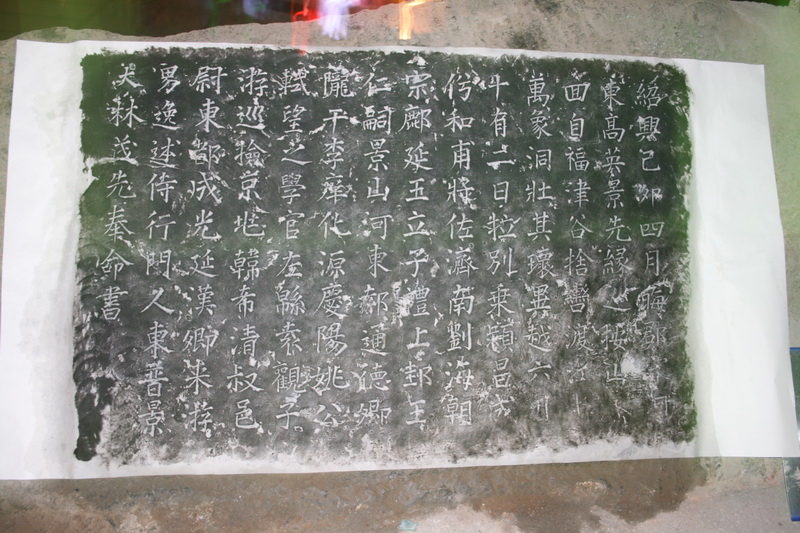 紹興己卯四月晦郡
東高英景先緣
回自福津谷捨轡渡江
萬象洞壯其瓌異越六月
十有二日粒別乗穎昌
份和甫將佐濟南劉海朝
宗鄜延王立子禮上邽王
仁嗣景山河東郝通德卿
隴干李庠化源慶陽姚公
軾望之學官左緜袁觀子
游巡檢京兆韓希清叔邑
尉東鄙成光延漢卿来游
男逸述侍行門人東普景
大林茂先奉命書